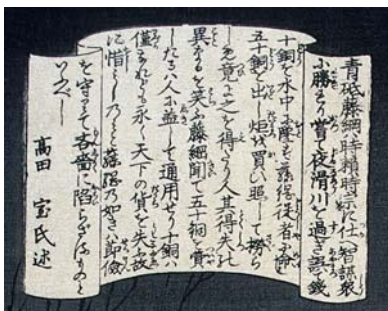 青砥藤綱時頼時宗に仕へ智識衆
に勝きたり嘗て夜滑川を過ぎ誤て銭
十銅を水中に墜す藤綱従者に命じ
五十銅を出し炬を買ひ照して撈ら
しめ竟に之を得たり人其得失の
異なるを笑ふ藤綱聞て五十銅を費
したるハ人に益して通用せり十銅ハ
僅なれども永く天下の貨を失ふ故
に惜しむのミと藤綱乃如き節倹
を守りて吝嗇に陥らざるものと
いふべし
高田 宝氏述